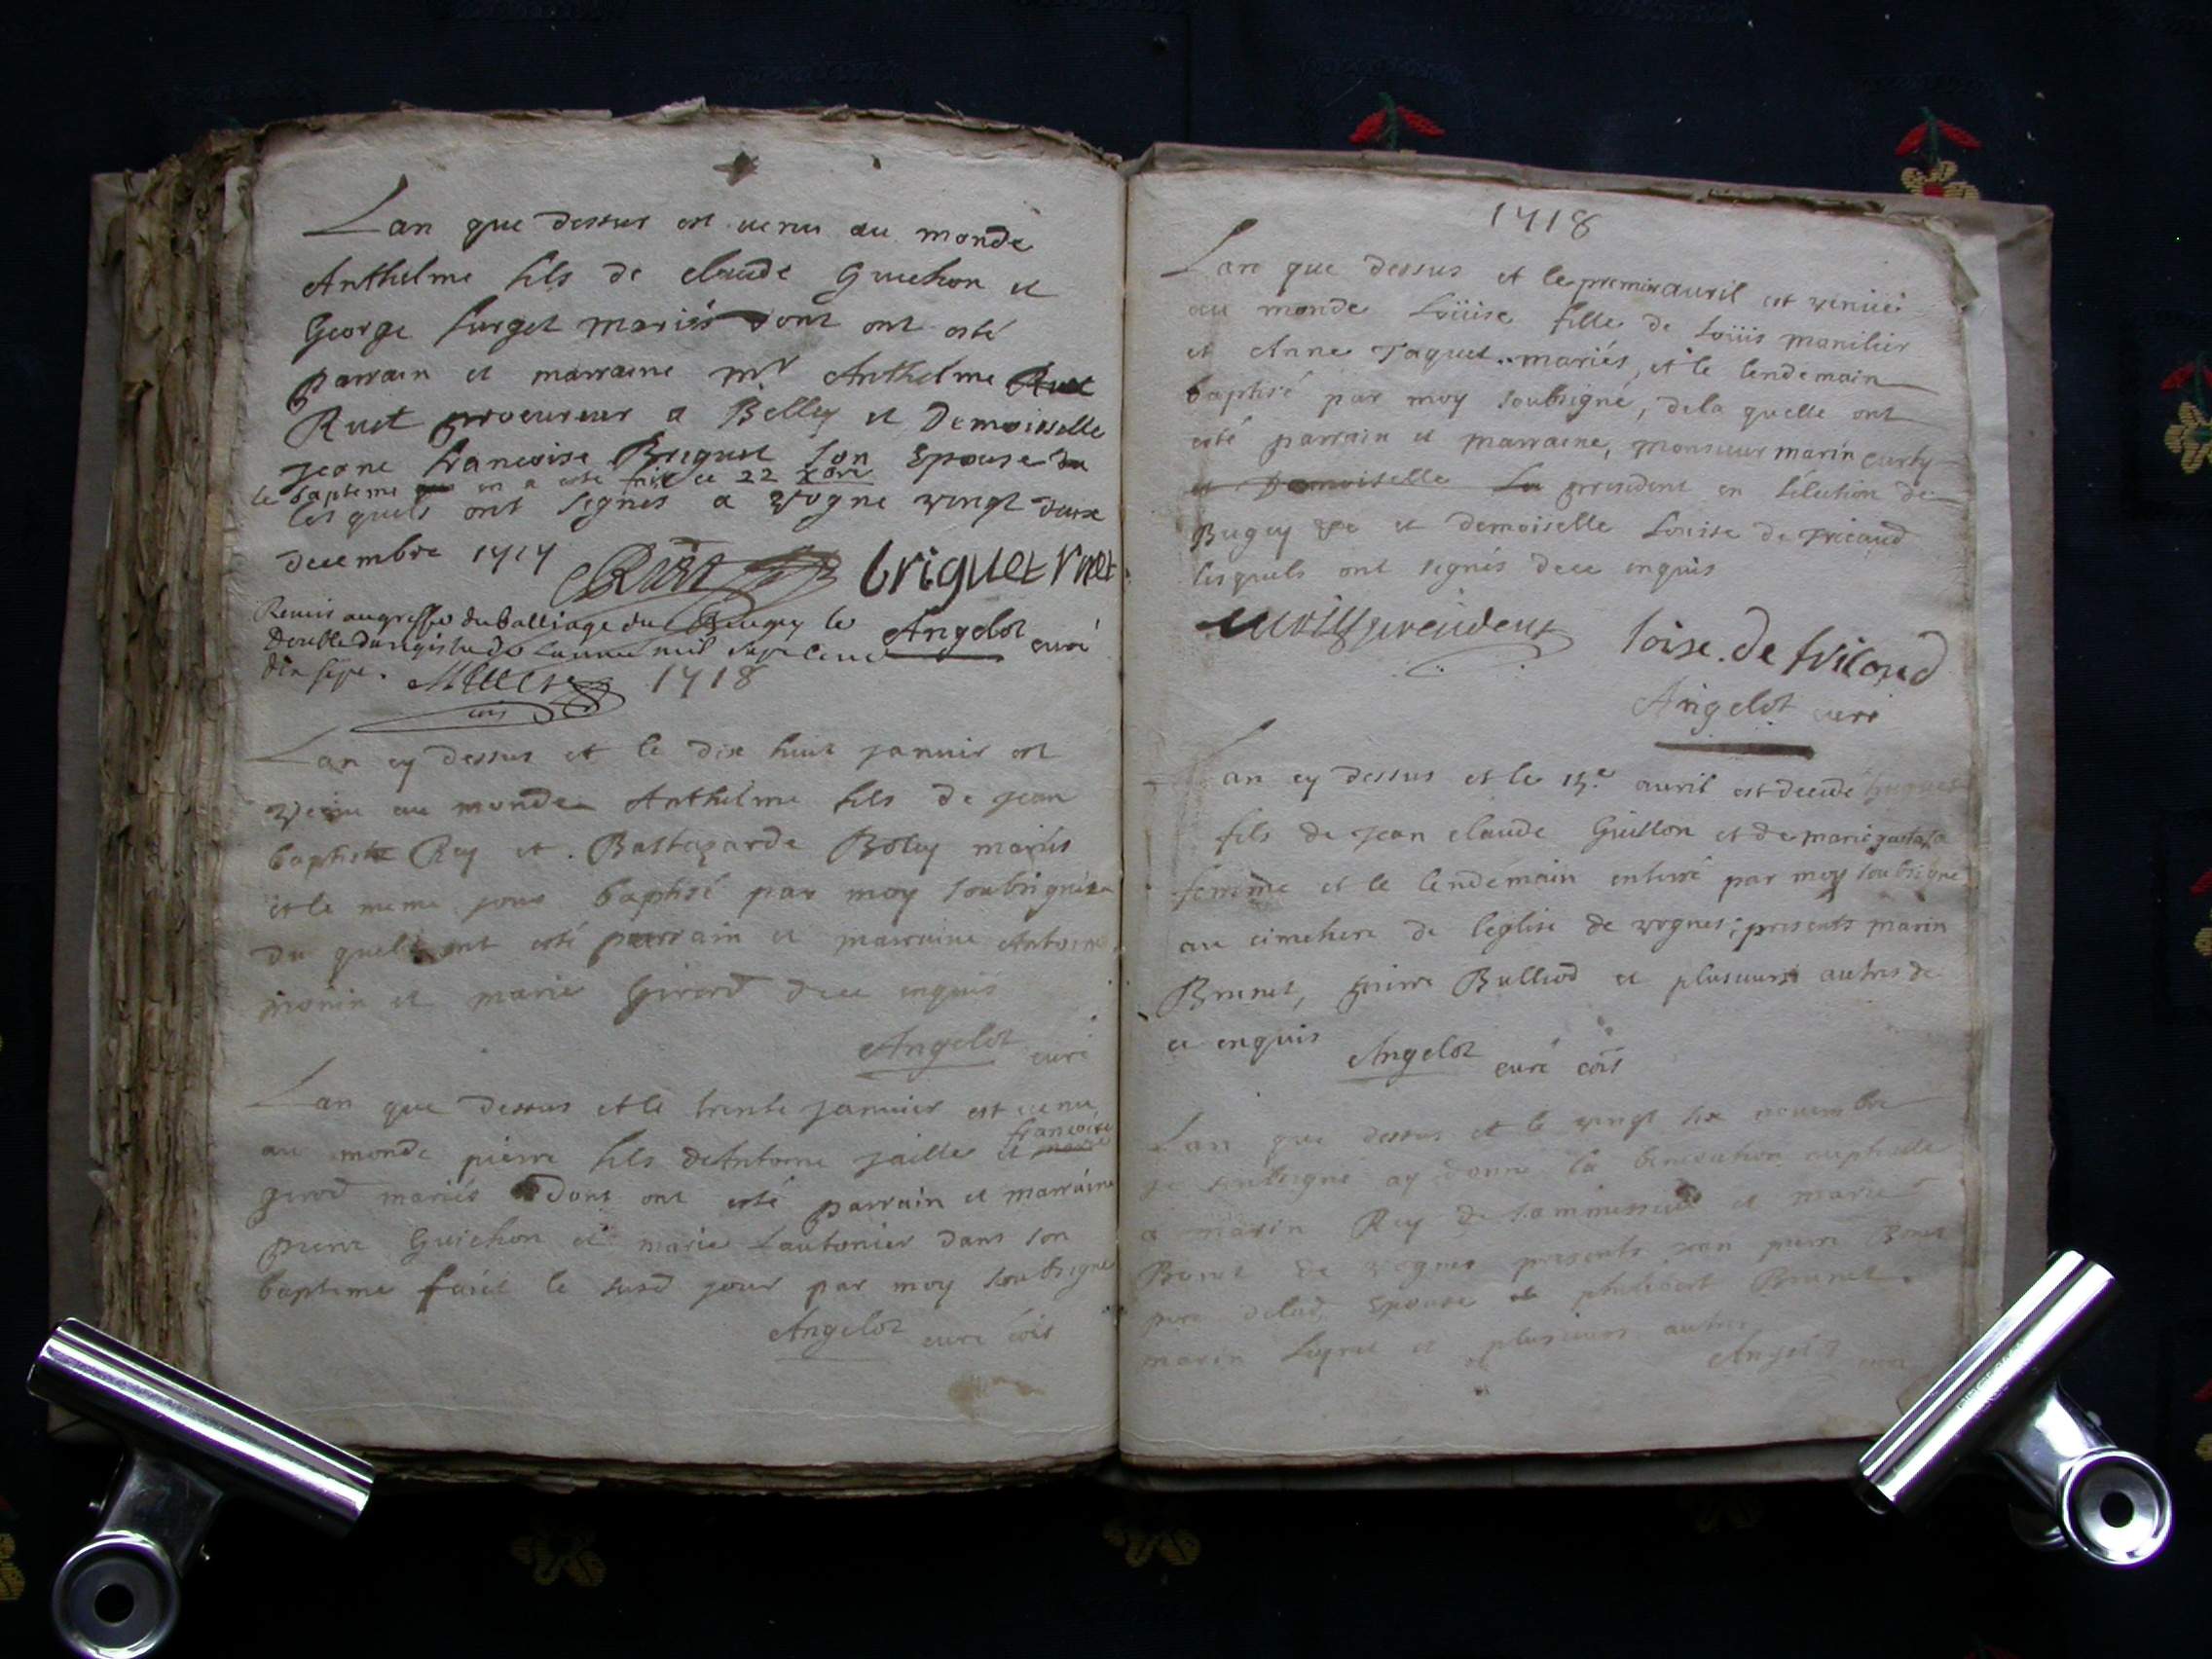 Lan que dessus est venu au monde
Anthelme fils de claude Guichon et
George surget mariés dont ont esté
parrain et marraine mr Anthelme Ruet
Ruet procureur a Belley et Demoiselle
jeane francoise Briguet son Epouse
le bapteme en a esté fait ce 22 xbre
lesquels ont signés a vogne vingt deux
decembre 1717
Ruet briguet ruet
Remis au greffe du balliage du Bugey le
Double du registre de lannée mil sept cent
dix sept.
Angelot curé
1718
Lan cy dessus et le dix huit janvier est
venu au monde Anthelme fils de jean
baptiste Rey et Baltazarde Boley mariés
et le meme jour baptisé par moy soubsigné
du quel ont esté parrain et marraine Antoine
monin et marie Girard de ce enquis
Angelot curé
Lan que dessus et le trente janvier est venu
francoise
au monde pierre fils de Antoine jaille et marie
girod mariés dont ont esté parrain et marraine
pierre Guichon et marie Lautonier dans son
bapteme fait le susd jour par moy soubsigné
Angelot curé cois
1718
Lan que dessus et le premier avril est venüe
au monde Loüise fille de Loüis manilier
et Anne Taquet mariés, et le lendemain
baptisé par moy soubsigné, de la quelle ont
esté parrain et marraine, monsieur marin curty
et Demoiselle La president en lélection de
Bugey et demoiselle Louise de Tricaud
lesquels ont signés dece enquis
curty president loise de tricaud
Angelot curé
Lan cy dessus et le 15e avril est decedé hugues
fils de jean claude Guillon et de marie sa
femme et le lendemain enterré par moy soubsigné
au cimetiere de léglise de vognes; presents marin
Brunet, pierre Bulliod et plusieurs autres de
ce enquis Angelot curé cois
Lan que dessus et le vingt six novembre
je soubsigné ay donné la benediction nuptialle
a marin Rey de et marie
Brunet de vognes presents jean pierre Brunet
pere de lad Epouse et philibert Brunet
marin et plusieurs autres
Angelot curé